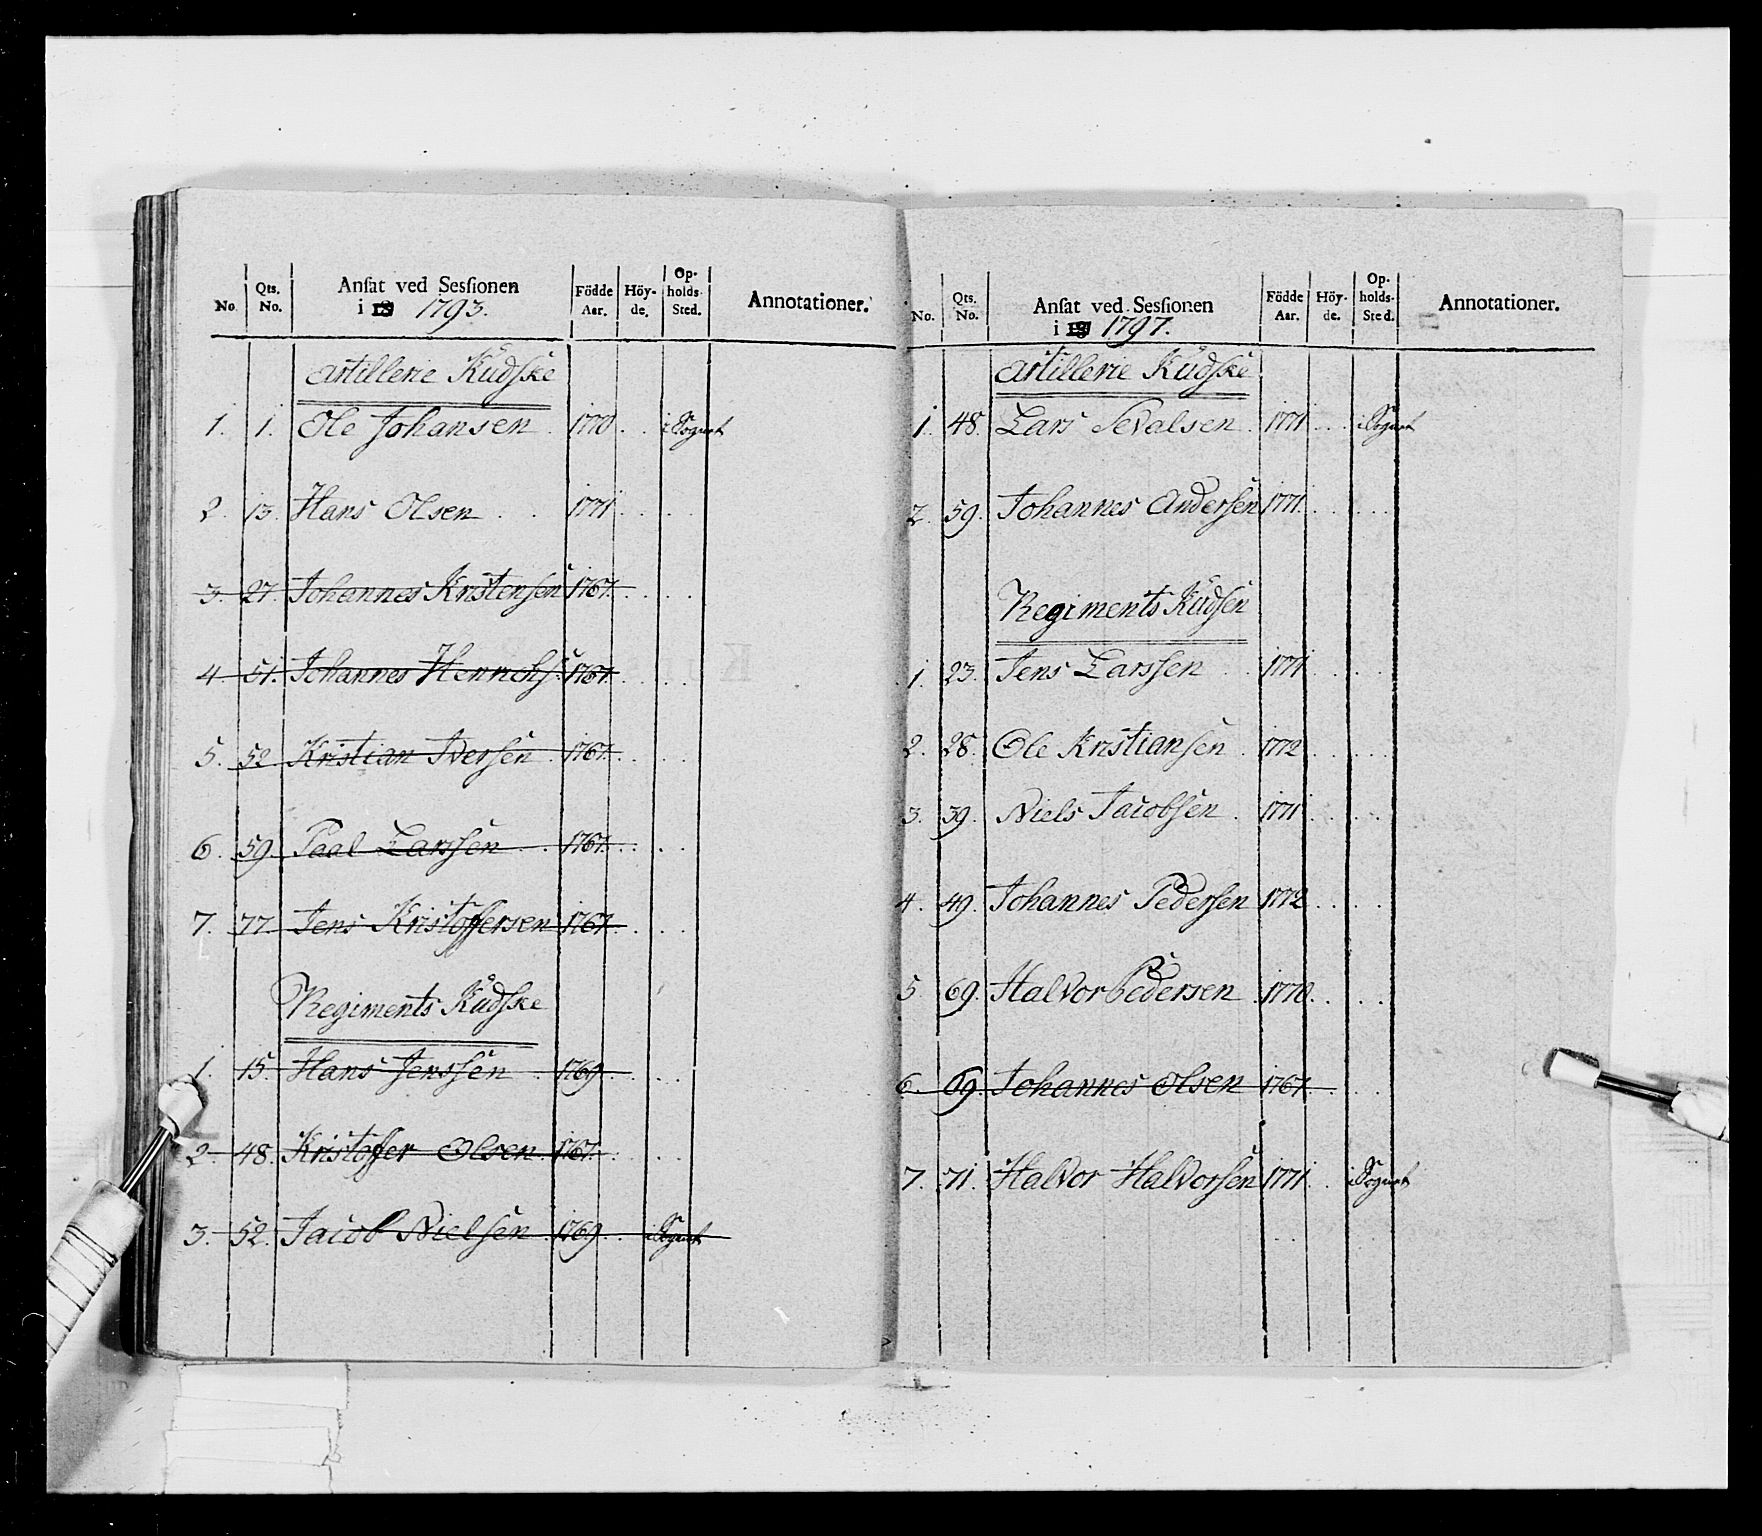 No. Qts. No. Ansat ved Sessionen i 18 1793. Födde Aar. Höy-de. Op-holds-Sted. Annotationer.
Artillerie Kudske
1. 1. Ole Johansen 1770 i Sognet
2. 13. Hans Olsen 1771
3. 27. Johannes Kristensen 1767.
4 51. Johannes Henrichs: 1767.
5. 52 Kristian Iversen 1767.
6. 59. Paal Larssen 1767.
7. 77. Jens Kristoffersen 1767.
Regiments Kudske
1. 15. Hans Jenssen 1769
2 48. Kristoffer Olsen 1767.
3. 52. Jacob Nielsen 1769 i Sognet
No. Qts. No. Ansat ved Sessionen i 18 1797. Födde Aar. Höy-de. Op-holds-Sted. Annotationer.
Artillerie Kudske
1. 48. Lars Sevalsen 1771 i Sognet
2. 59. Johannes Andersen 1771.
Regiments Kudsen
1. 23. Jens Larssen 1771
2. 28. Ole Kristiansen 1772
3. 39. Niels Jacobsen 1771
4. 49. Johannes Pedersen 1772
5 69. Halvor Pedersen 1770
6 69. Johannes Olsen 1767.
7. 71. Halvor Halvorsen 1771 i Sognet